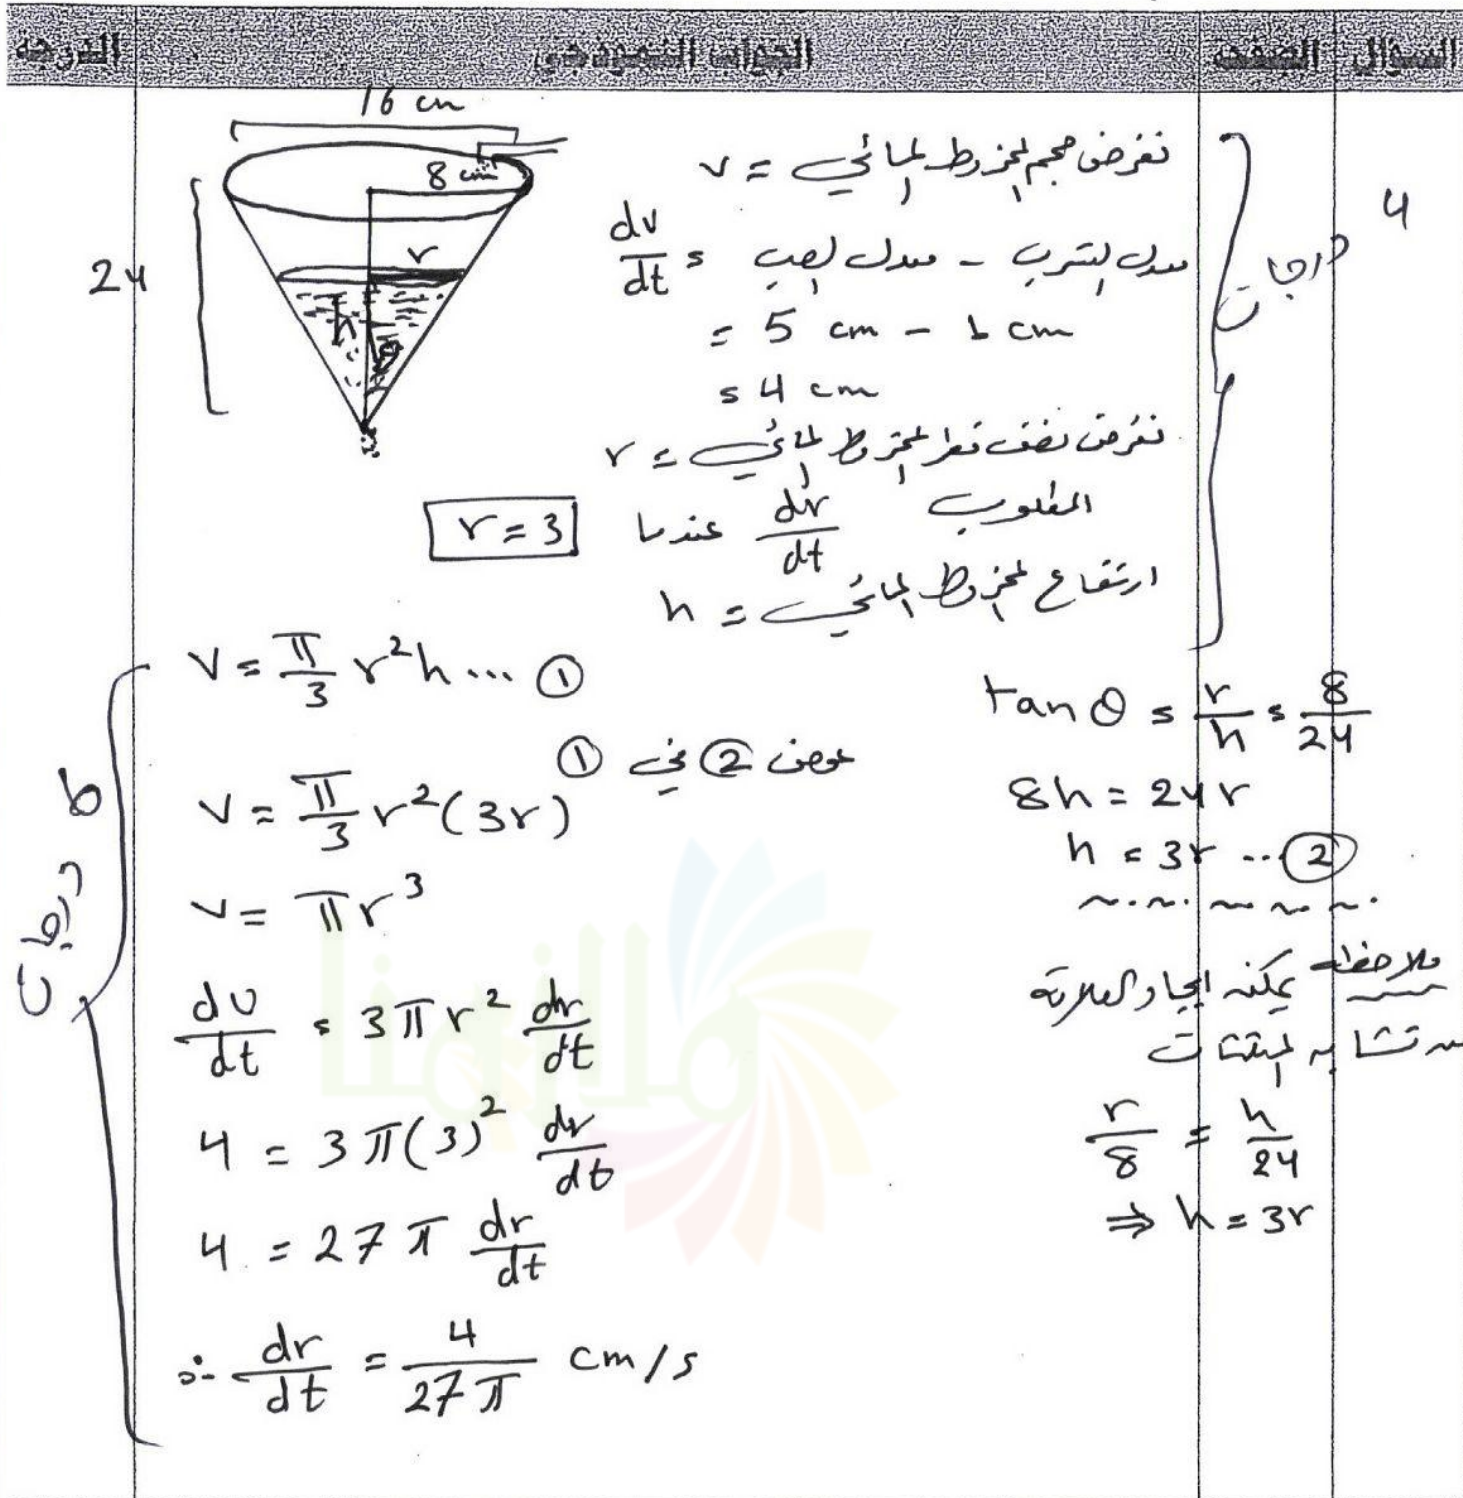 السؤال الصفحة الجواب النموذجي الدرجة
16 cm
8 cm
r
24
h
θ
4 درجات
نفرض حجم المخروط المائي = v
dv/dt = معدل الصب - معدل التسرب
= 5 cm - 1 cm
= 4 cm
نفرض نصف قطر المخروط المائي = r
المطلوب dr/dt عندما r = 3
ارتفاع المخروط المائي = h
tan θ = r/h = 8/24
8h = 24r
h = 3r ... ②
ملاحظة يمكن ايجاد العلاقة
من تشابه المثلثات
r/8 = h/24
⇒ h = 3r
6 درجات
v = π/3 r²h ... ①
نعوض ② في ①
v = π/3 r²(3r)
v = πr³
dv/dt = 3πr² dr/dt
4 = 3π(3)² dr/dt
4 = 27π dr/dt
∴ dr/dt = 4/27π cm/s
ملازمنا